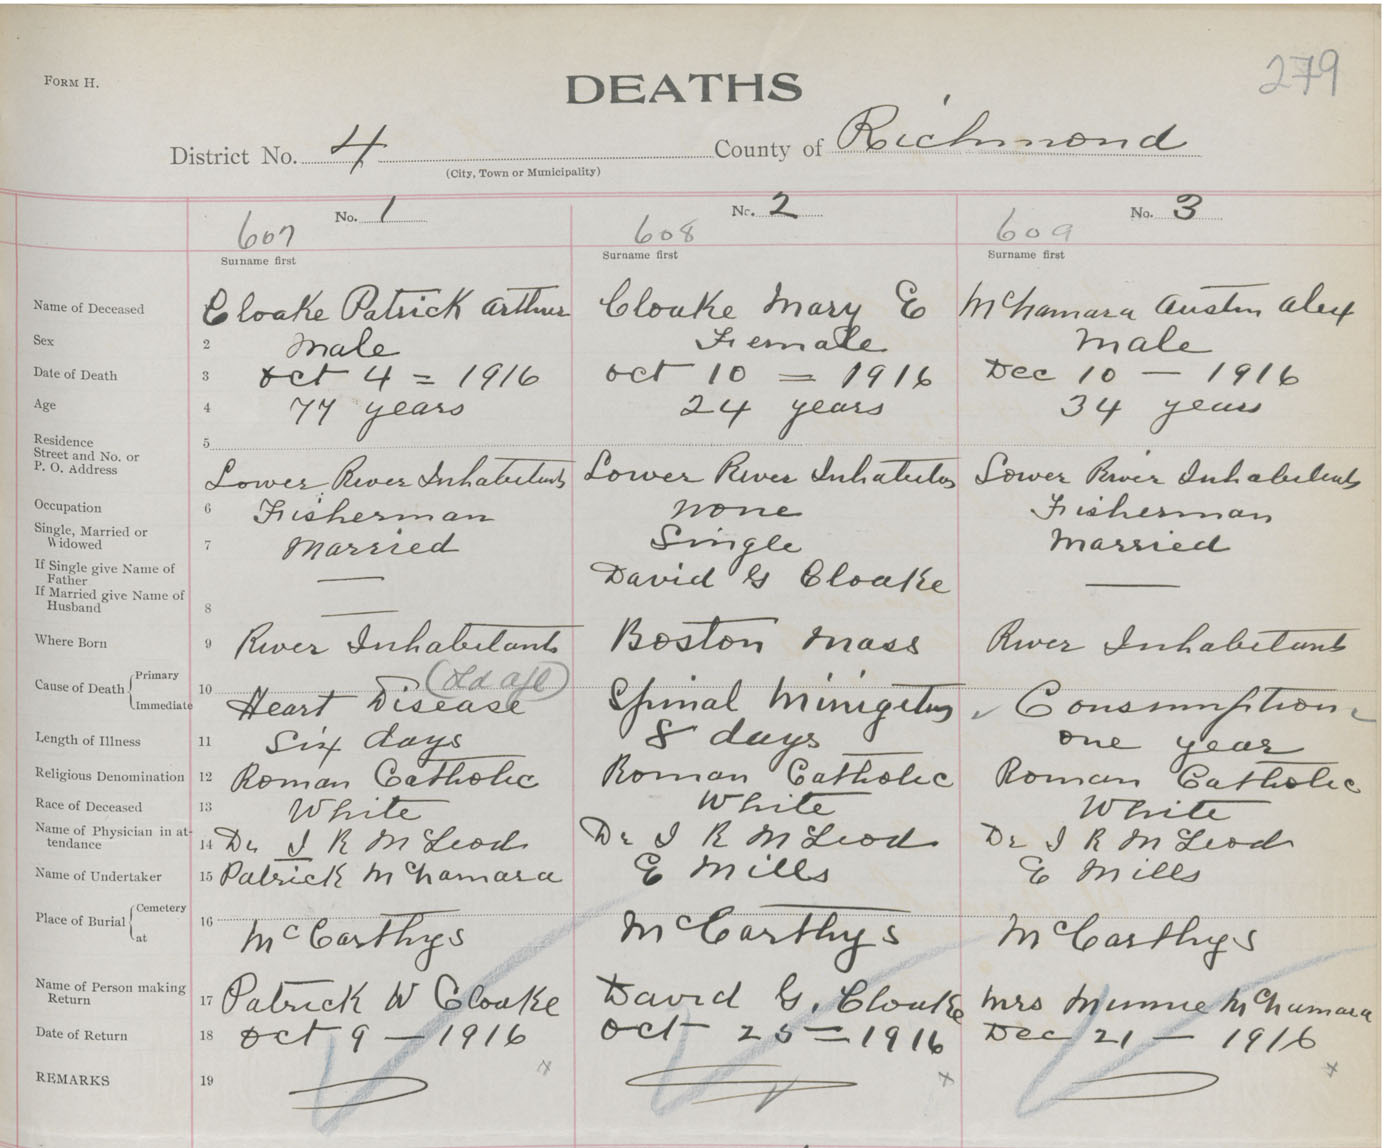 279
FORM H.
DEATHS
District No. 4 County of Richmond
(City, Town or Municipality)
No. 1 No. 2 No. 3
607 608 609
Surname first Surname first Surname first
Name of Deceased Cloake Patrick Arthur Cloake Mary E McNamara Austin Alex
Sex 2 Male Female Male
Date of Death 3 Oct 4 = 1916 Oct 10 = 1916 Dec 10 — 1916
Age 4 77 years 24 years 34 years
Residence 5
Street and No. or
P. O. Address Lower River Inhabitants Lower River Inhabitants Lower River Inhabitants
Occupation 6 Fisherman None Fisherman
Single, Married or
Widowed 7 Married Single Married
If Single give Name of
Father — David G Cloake —
If Married give Name of
Husband 8 —
Where Born 9 River Inhabitants Boston Mass River Inhabitants
Cause of Death Primary 10 (Old age)
Immediate Heart Disease Spinal Minigitus Consumption
Length of Illness 11 Six days 8 days one year
Religious Denomination 12 Roman Catholic Roman Catholic Roman Catholic
Race of Deceased 13 White White White
Name of Physician in at-
tendance 14 Dr J R McLeod Dr J R McLeod Dr J R McLeod
Name of Undertaker 15 Patrick McNamara E Mills E Mills
Place of Burial Cemetery 16
at McCarthys McCarthys McCarthys
Name of Person making
Return 17 Patrick W Cloake David G. Cloake Mrs Minnie McNamara
Date of Return 18 Oct 9 — 1916 Oct 25 = 1916 Dec 21 — 1916
REMARKS 19 x x x